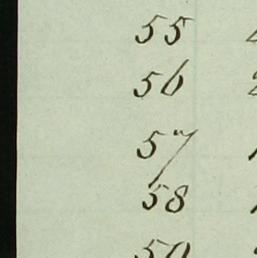 55
56
57
58